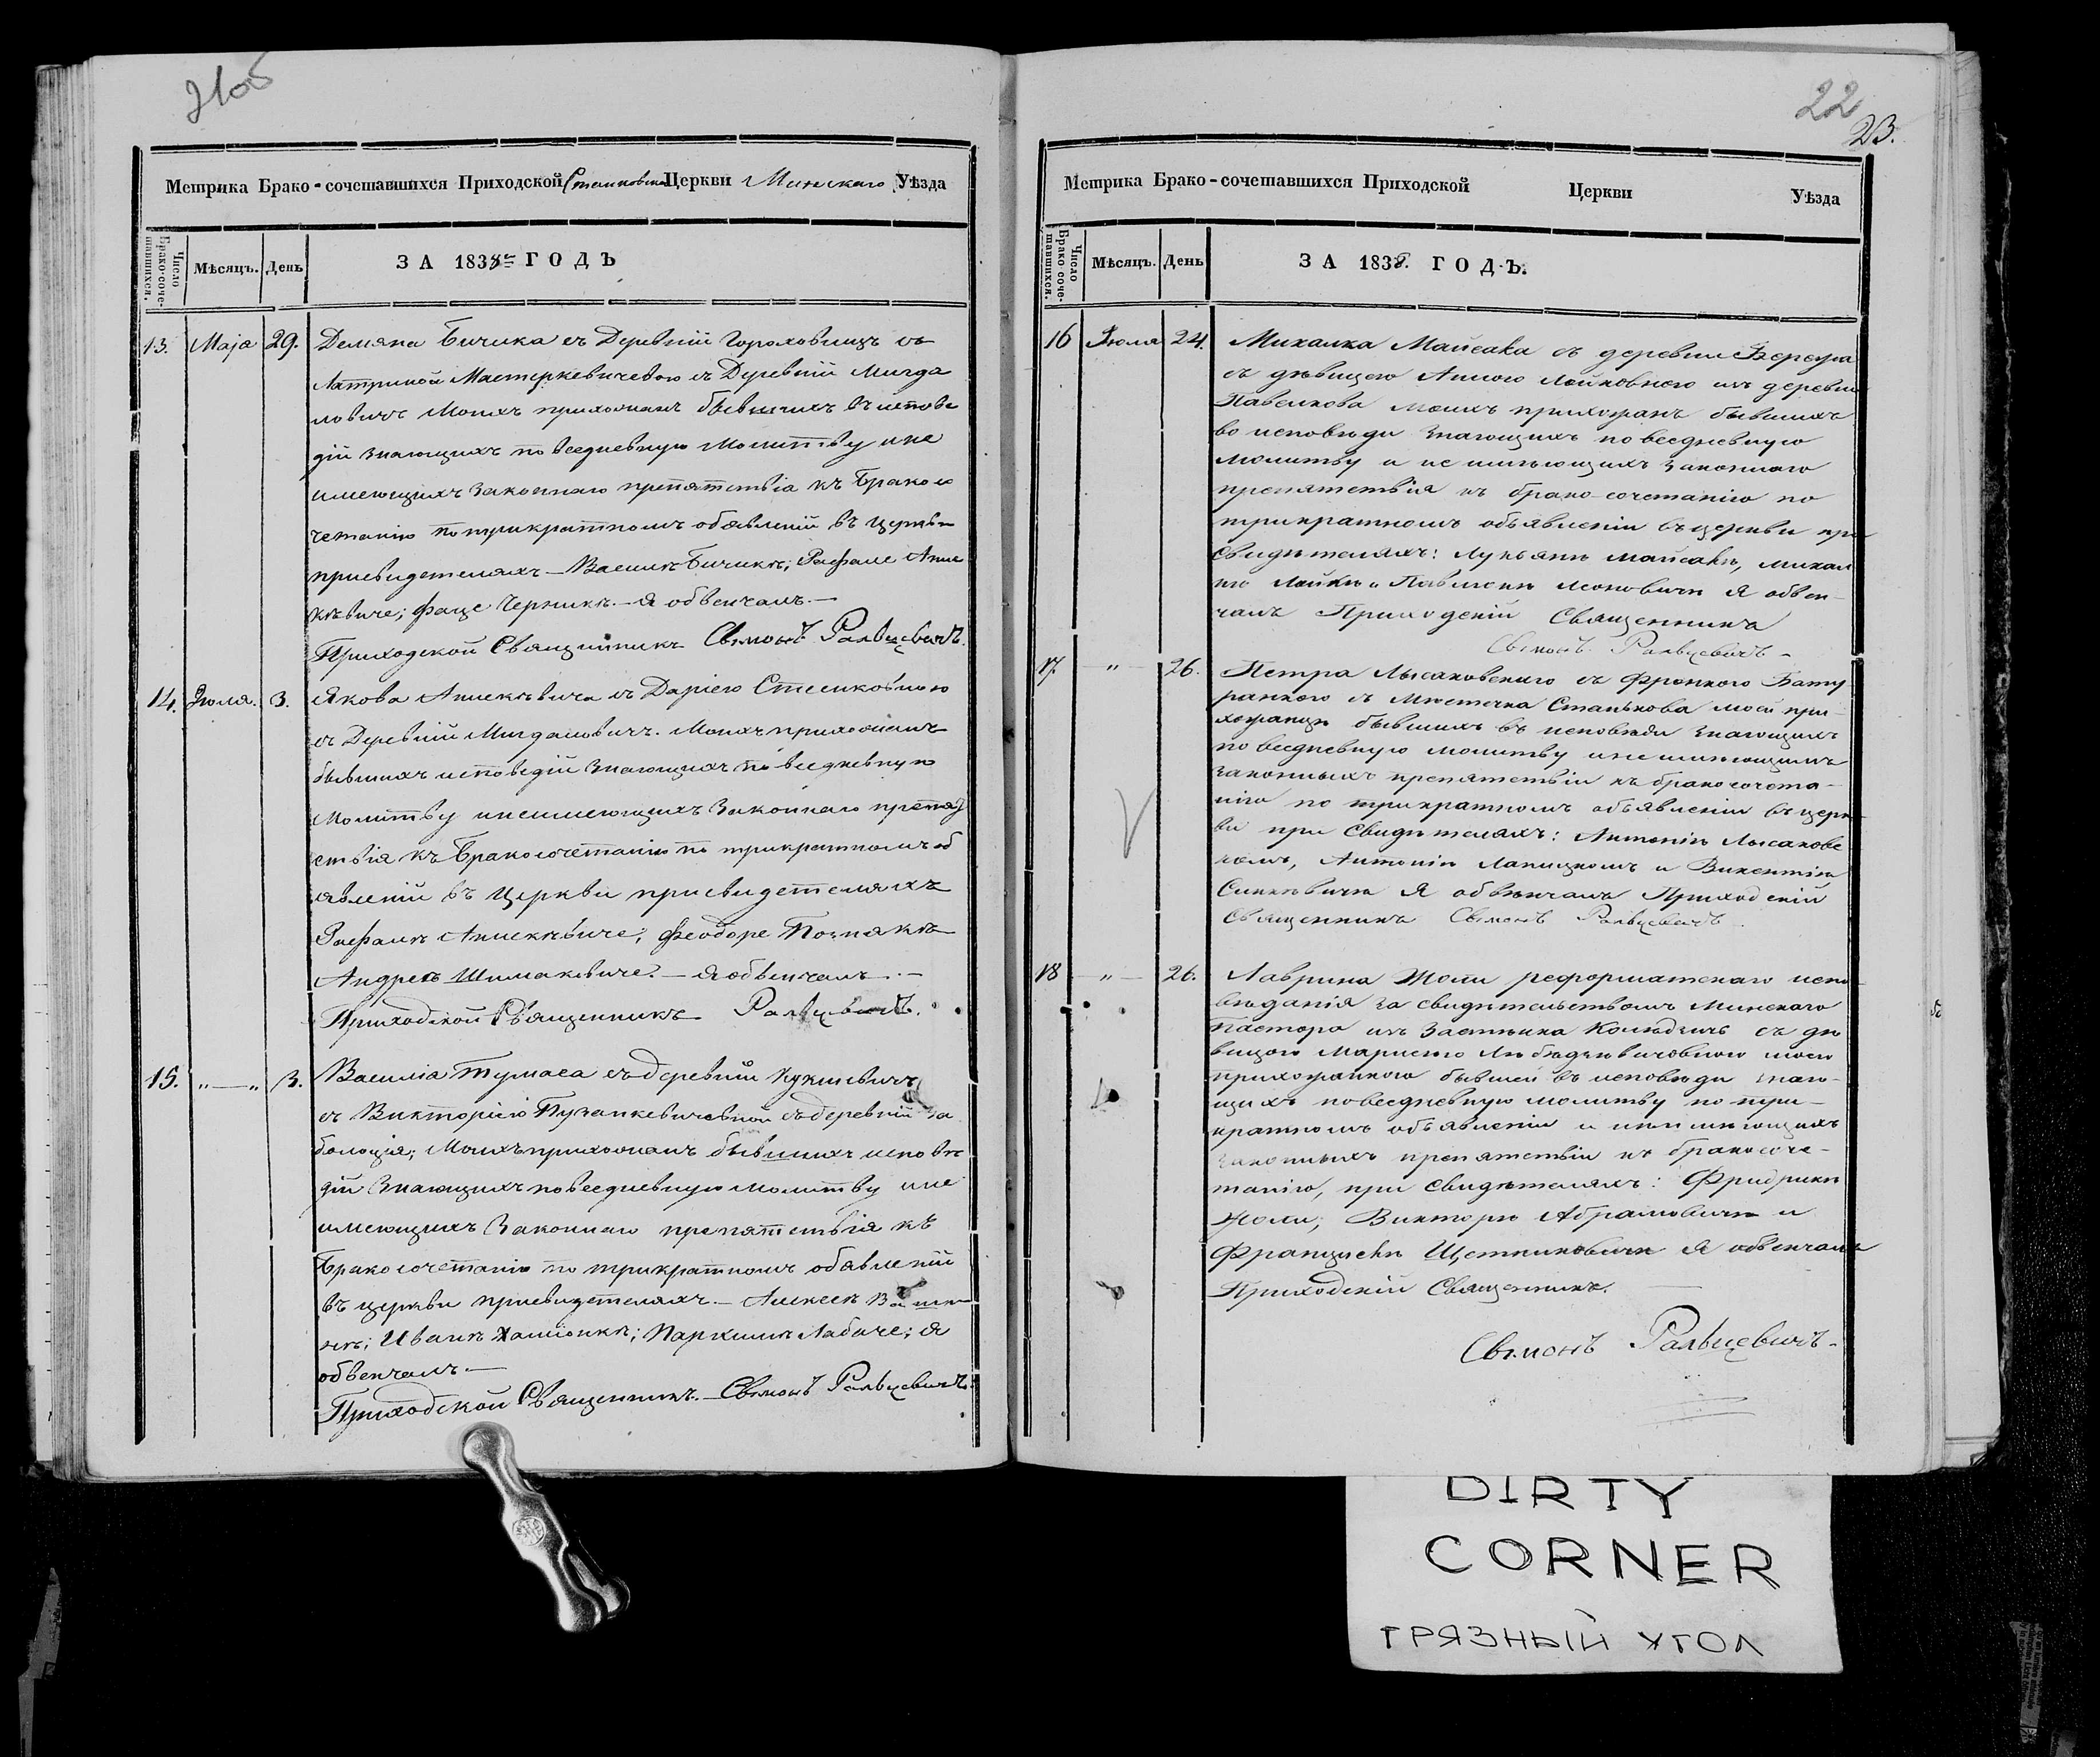 21об
Метрика Брако-сочетавшихся Приходской Станковской Церкви Минскаго Уѣзда
Число Брако-соче-тавшихся.
Мѣсяцъ.
День
ЗА 1838й ГОДЪ
13. Maja 29. Демяна Бичика съ Деревнiи Гороховищъ съ
Катриной Мастеркевичевою съ Деревнiи Мигда
ловичъ Моихъ прихожанъ бывшихъ въ испове
дiи знающихъ повседневную Молитву и не
имеющихъ Законнаго препятствiа къ Бракосо
четанiю по трикратномъ обявленiи въ Церкви
присвидетеляхъ — Василѣ Бичикѣ; Рафале Апис
кѣвиче; Фаце Черникѣ. — Я обвенчалъ. —
Приходской Священникъ Сѵмонъ Ральцевичъ.
14. Iюля. 3. Якова Аписькѣвича съ Дарiею Стесиковною
съ Деревнiи Мигдаловичъ. Моихъ прихожанъ
бывшихъ исповедiи знающихъ повседневную
Молитву инеимеющихъ Законнаго препят
ствiя къ Бракосочетанiю по трикратномъ об
явленiи въ Церкви присвидетеляхъ
Рафалѣ Аписькѣвиче; Феодоре
Андреѣ Шимаковиче. — Я обвенчалъ. —
Приходской Священникъ Ральцевичъ.
15. „ — „ 3. Василiа Тумаса съ деревнiи Кукшевичъ
съ Викторiею Пузанкевичевной съ деревнiи За
болоцiя; Моихъ прихожанъ бывшихъ исповѣ
дiи Знающихъ повседневную молитву и не
имеющихъ Законнаго препятствiя къ
Бракосочетанiю по трикратномъ обявленiи
въ церкви присвидетеляхъ. — Алексеѣ
Иванѣ; Пархимѣ Лабаче; Я
обвенчалъ. —
Приходской Священникъ. — Сѵмонъ Ральцевичъ.
22
23.
Метрика Брако-сочетавшихся Приходской Церкви Уѣзда
Число Брако-соче-тавшихся.
Мѣсяцъ.
День
ЗА 1838. ГОДЪ.
16 Iюля 24. Михалка Майсака съ деревни
съ дѣвицею Анною Лойковною изъ деревни
Павелкова моихъ прихожанъ бывшихъ
во исповѣди знающихъ повседневную
молитву и не имѣющихъ законнаго
препятствiя къ брако-сочетанiю по
трикратномъ объявленiи въ церкви при
Свидѣтеляхъ: Лукьянѣ Майсакѣ, Михал
кѣ Лойкѣ и Павлюкѣ я обвен-
чалъ Приходскiй Священникъ
Сѵмонъ Ральцевичъ —
17. „ — 26. Петра Лысаковскаго съ
съ Мѣстечка Станькова моей при-
хожанцы бывшихъ въ исповѣди знающихъ
повседневную молитву инеимѣющихъ
законныхъ препятствiи къ бракосочета-
нiю по трикратномъ объявленiи въ церк-
ви при Свидѣтеляхъ: Антонiѣ Лысаковс-
комъ, Антонiѣ Лапицкомъ и Викентiѣ
Синкѣвичѣ я обвѣнчалъ Приходскiй
Священникъ Сѵмонъ Ральцевичъ.
18 — „ — 26. Лаврина Жоли реформатскаго испо-
вѣданiя за свидѣтельствомъ Минскаго
Пастора изъ Застѣнка съ дѣ
вицою Марисею моею
прихожанкою бывшей въ исповѣди знаю-
щихъ повседневную молитву по три-
кратномъ объявленiи и неимѣющихъ
законныхъ препятствiи къ бракосоче-
танiю, при Свидѣтеляхъ: Фридрикѣ
Жоли, Викторѣ Абрамовичѣ и
Францискѣ я обвенчалъ
Приходскiй Священникъ. —
Сѵмонъ Ральцевичъ —
DIRTY
CORNER
ГРЯЗНЫЙ УГОЛ